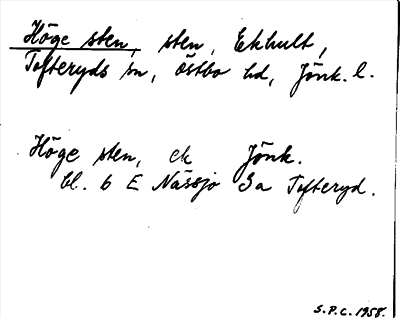 Höge sten, sten, Ekhult,
Tofteryds sn, Östbo hd, Jönk. l.
Höge sten, ek Jönk.
bl. 6 E Nässjö 3a Tofteryd.
S.P.C. 1958.